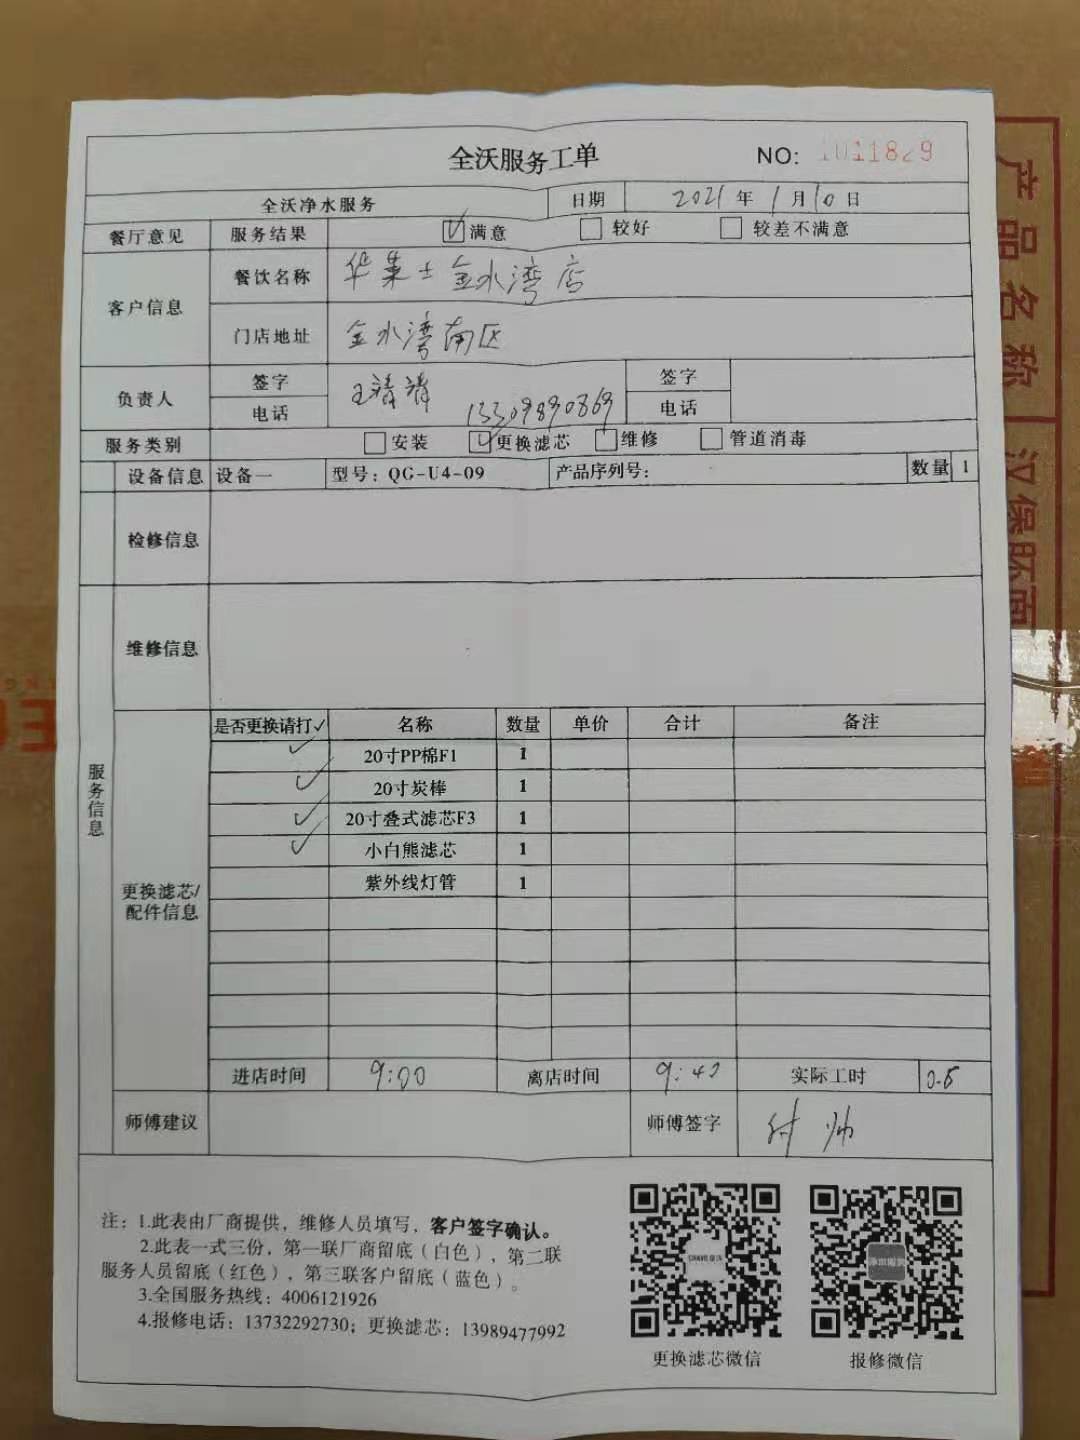 全沃服务工单
NO: 1011829
全沃净水服务 日期 2021年1月10日
餐厅意见 服务结果 ☑满意 □较好 □较差不满意
客户信息 餐饮名称 华莱士金水湾店
门店地址 金水湾南区
负责人 签字 王清清 签字
电话 13309890869 电话
服务类别 □安装 ☑更换滤芯 □维修 □管道消毒
设备信息 设备一 型号：QG-U4-09 产品序列号： 数量 1
检修信息
维修信息
服务信息
更换滤芯/
配件信息
是否更换请打✓ 名称 数量 单价 合计 备注
✓ 20寸PP棉F1 1
✓ 20寸炭棒 1
✓ 20寸叠式滤芯F3 1
✓ 小白熊滤芯 1
紫外线灯管 1
进店时间 9:00 离店时间 9:40 实际工时 0.5
师傅建议 师傅签字 付帅
注：1.此表由厂商提供，维修人员填写，客户签字确认。
2.此表一式三份，第一联厂商留底（白色），第二联
服务人员留底（红色），第三联客户留底（蓝色）。
3.全国服务热线：4006121926
4.报修电话：13732292730；更换滤芯：13989477992
更换滤芯微信
报修微信
产品名称